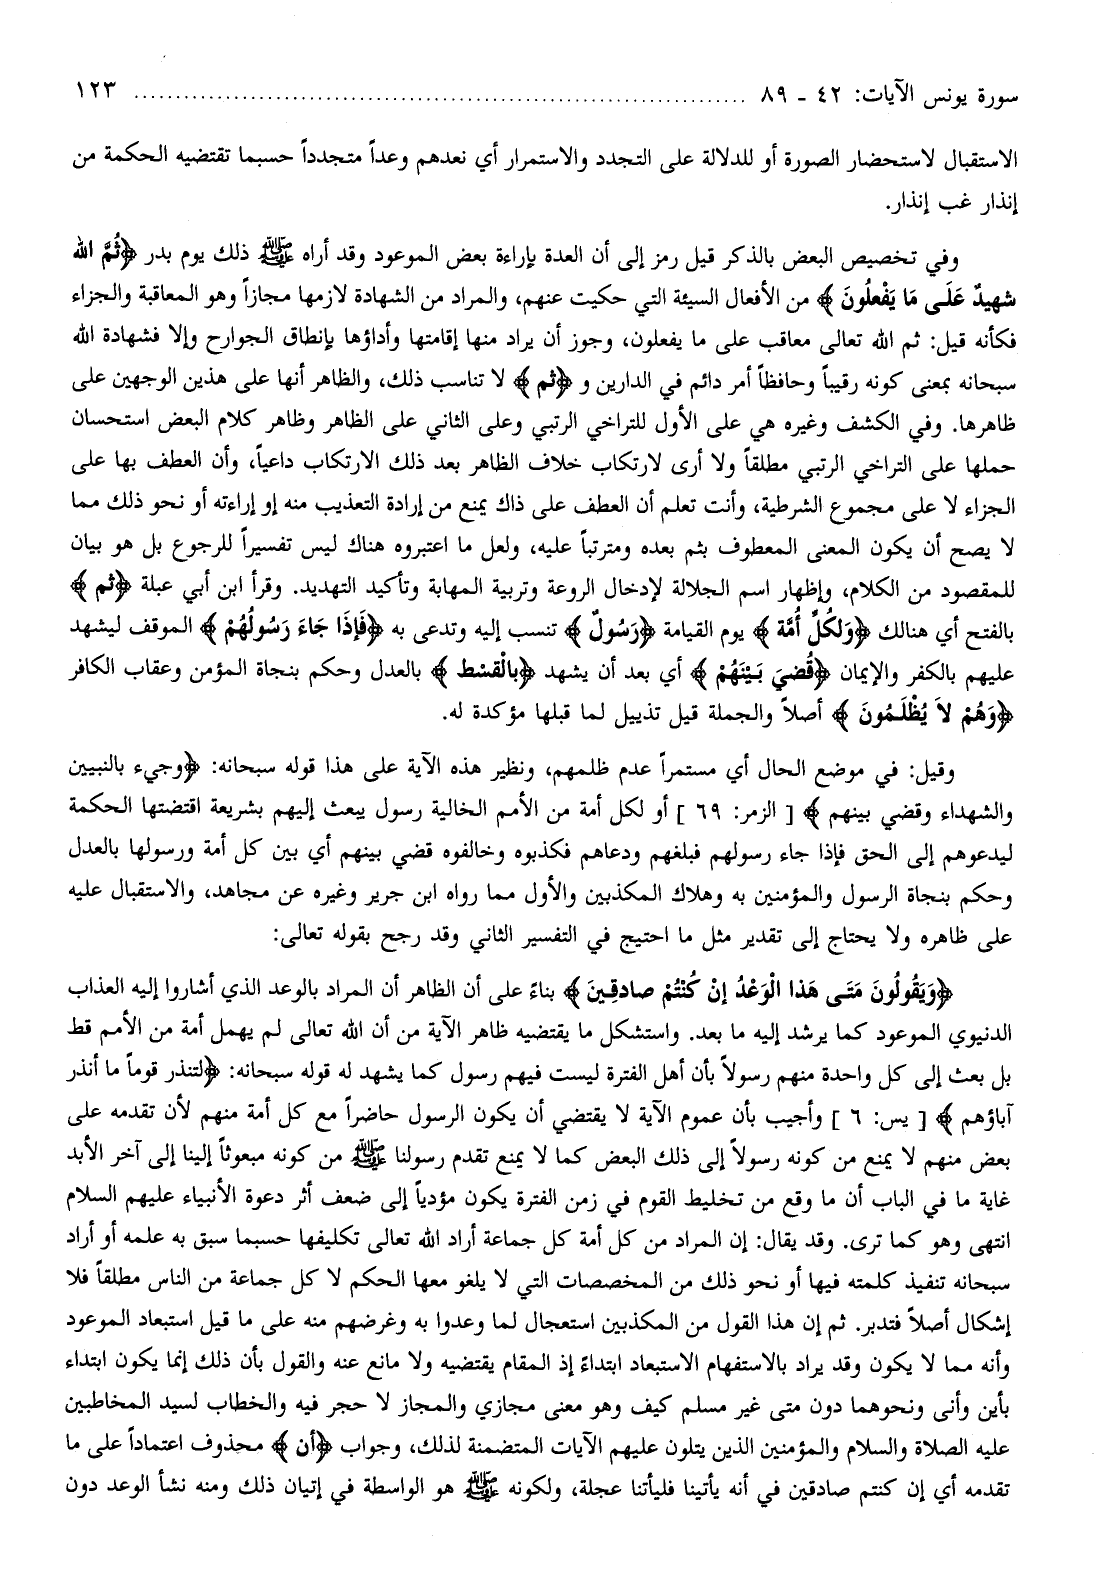 سورة يونس الآيات: ٤٢ ـ ٨٩ ........................................................................... ١٢٣
الاستقبال لاستحضار الصورة أو للدلالة على التجدد والاستمرار أي نعدهم وعداً متجدداً حسبما تقتضيه الحكمة من
إنذار غب إنذار.
وفي تخصيص البعض بالذكر قيل رمز إلى أن العدة بإراءة بعض الموعود وقد أراه ﷺ ذلك يوم بدر ﴿ثُمَّ الله
شهيدٌ عَلَى مَا يَفْعلُونَ﴾ من الأفعال السيئة التي حكيت عنهم، والمراد من الشهادة لازمها مجازاً وهو المعاقبة والجزاء
فكأنه قيل: ثم الله تعالى معاقب على ما يفعلون، وجوز أن يراد منها إقامتها وأداؤها بإنطاق الجوارح وإلا فشهادة الله
سبحانه بمعنى كونه رقيباً وحافظاً أمر دائم في الدارين و ﴿ثم﴾ لا تناسب ذلك، والظاهر أنها على هذين الوجهين على
ظاهرها. وفي الكشف وغيره هي على الأول للتراخي الرتبي وعلى الثاني على الظاهر وظاهر كلام البعض استحسان
حملها على التراخي الرتبي مطلقاً ولا أرى لارتكاب خلاف الظاهر بعد ذلك الارتكاب داعياً، وأن العطف بها على
الجزاء لا على مجموع الشرطية، وأنت تعلم أن العطف على ذاك يمنع من إرادة التعذيب منه إو إراءته أو نحو ذلك مما
لا يصح أن يكون المعنى المعطوف بثم بعده ومترتباً عليه، ولعل ما اعتبروه هناك ليس تفسيراً للرجوع بل هو بيان
للمقصود من الكلام، وإظهار اسم الجلالة لإدخال الروعة وتربية المهابة وتأكيد التهديد. وقرأ ابن أبي عبلة ﴿ثم﴾
بالفتح أي هنالك ﴿وَلكُلِّ أُمَّة﴾ يوم القيامة ﴿رَسُولٌ﴾ تنسب إليه وتدعى به ﴿فَإِذَا جَاءَ رَسُولُهُمْ﴾ الموقف ليشهد
عليهم بالكفر والإيمان ﴿قُضيَ بَيْنَهُمْ﴾ أي بعد أن يشهد ﴿بالْقسْط﴾ بالعدل وحكم بنجاة المؤمن وعقاب الكافر
﴿وَهُمْ لاَ يُظْلَمُونَ﴾ أصلاً والجملة قيل تذييل لما قبلها مؤكدة له.
وقيل: في موضع الحال أي مستمراً عدم ظلمهم، ونظير هذه الآية على هذا قوله سبحانه: ﴿وجيء بالنبيين
والشهداء وقضي بينهم﴾ [ الزمر: ٦٩ ] أو لكل أمة من الأمم الخالية رسول يبعث إليهم بشريعة اقتضتها الحكمة
ليدعوهم إلى الحق فإذا جاء رسولهم فبلغهم ودعاهم فكذبوه وخالفوه قضي بينهم أي بين كل أمة ورسولها بالعدل
وحكم بنجاة الرسول والمؤمنين به وهلاك المكذبين والأول مما رواه ابن جرير وغيره عن مجاهد، والاستقبال عليه
على ظاهره ولا يحتاج إلى تقدير مثل ما احتيج في التفسير الثاني وقد رجح بقوله تعالى:
﴿وَيَقُولُونَ مَتَى هَذا الْوَعْدُ إنْ كُنْتُمْ صادقِينَ﴾ بناءً على أن الظاهر أن المراد بالوعد الذي أشاروا إليه العذاب
الدنيوي الموعود كما يرشد إليه ما بعد. واستشكل ما يقتضيه ظاهر الآية من أن الله تعالى لم يهمل أمة من الأمم قط
بل بعث إلى كل واحدة منهم رسولاً بأن أهل الفترة ليست فيهم رسول كما يشهد له قوله سبحانه: ﴿لتنذر قوماً ما أنذر
آباؤهم﴾ [ يس: ٦ ] وأجيب بأن عموم الآية لا يقتضي أن يكون الرسول حاضراً مع كل أمة منهم لأن تقدمه على
بعض منهم لا يمنع من كونه رسولاً إلى ذلك البعض كما لا يمنع تقدم رسولنا ﷺ من كونه مبعوثاً إلينا إلى آخر الأبد
غاية ما في الباب أن ما وقع من تخليط القوم في زمن الفترة يكون مؤدياً إلى ضعف أثر دعوة الأنبياء عليهم السلام
انتهى وهو كما ترى. وقد يقال: إن المراد من كل أمة كل جماعة أراد الله تعالى تكليفها حسبما سبق به علمه أو أراد
سبحانه تنفيذ كلمته فيها أو نحو ذلك من المخصصات التي لا يلغو معها الحكم لا كل جماعة من الناس مطلقاً فلا
إشكال أصلاً فتدبر. ثم إن هذا القول من المكذبين استعجال لما وعدوا به وغرضهم منه على ما قيل استبعاد الموعود
وأنه مما لا يكون وقد يراد بالاستفهام الاستبعاد ابتداءً إذ المقام يقتضيه ولا مانع عنه والقول بأن ذلك إنما يكون ابتداء
بأين وأنى ونحوهما دون متى غير مسلم كيف وهو معنى مجازي والمجاز لا حجر فيه والخطاب لسيد المخاطبين
عليه الصلاة والسلام والمؤمنين الذين يتلون عليهم الآيات المتضمنة لذلك، وجواب ﴿أن﴾ محذوف اعتماداً على ما
تقدمه أي إن كنتم صادقين في أنه يأتينا فليأتنا عجلة، ولكونه ﷺ هو الواسطة في إتيان ذلك ومنه نشأ الوعد دون